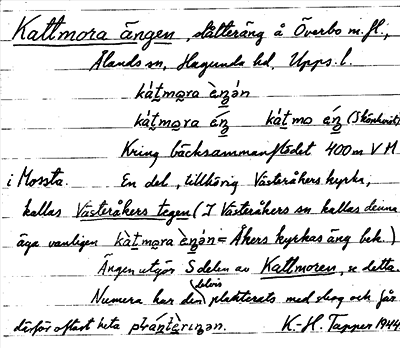 Kattmora ängen, slåtteräng å Överbo m.fl.,
Ålands sn, Hagunda hd, Upps. l.
kátmora ä̀ŋən
kátmora äŋ kátmo äŋ (Skönkvist)
Kring bäcksammanflödet 400 m V M
i Mossta. En del, tillhörig Västeråkers kyrka,
kallas Västeråkers tegen (I Västeråkers sn kallas denna
äga vanligen kàtmora ä̀ŋən = Åkers kyrkas äng bek.)
Ängen utgör S delen av Kattmoren, se detta.
delvis
Numera har den planterats med skog och får
därför oftast heta plántèriŋən. K.-H. Tapper 1944